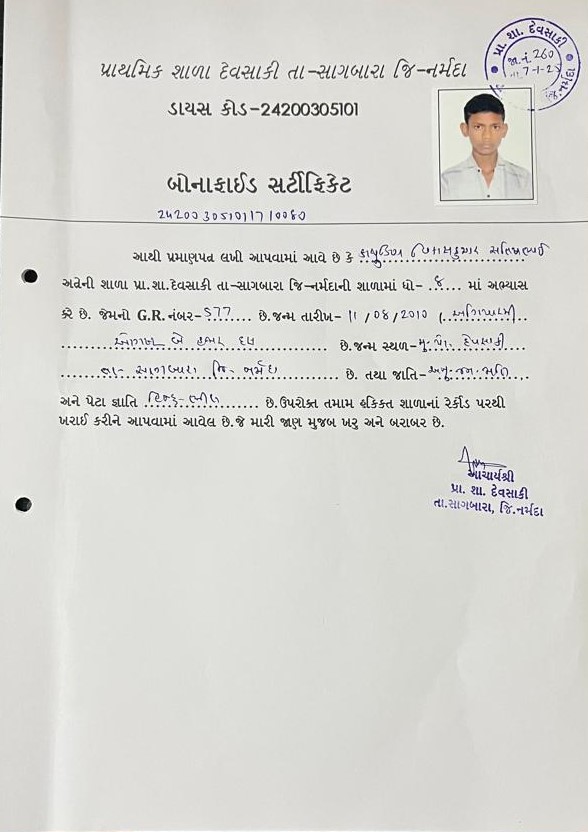 પ્રાથમિક શાળા દેવસાકી તા-સાગબારા જિ-નર્મદા
ડાયસ કોડ-24200305101
પ્રા. શા. દેવસાકી
જા.નં. 260
તા. 7-1-25
જિ.નર્મદા
બોનાફાઈડ સર્ટીફિકેટ
242003051011710080
આથી પ્રમાણપત્ર લખી આપવામાં આવે છે કે
અત્રેની શાળા પ્રા.શા.દેવસાકી તા-સાગબારા જિ-નર્મદાની શાળામાં ધો- ૪ માં અભ્યાસ
કરે છે. જેમનો G.R. નંબર- 577 છે.જન્મ તારીખ- 11/08/2010 (અગિયારમી
ઓગષ્ટ બે હજાર દસ છે.જન્મ સ્થળ- મુ.પો. દેવસાકી
તા- સાગબારા જિ- નર્મદા છે. તથા જાતિ- અનુ.જન.જાતિ
અને પેટા જ્ઞાતિ હિન્દુ-ભીલ છે.ઉપરોક્ત તમામ હકિક્ત શાળાનાં રેર્કોડ પરથી
ખરાઈ કરીને આપવામાં આવેલ છે.જે મારી જાણ મુજબ ખરુ અને બરાબર છે.
આચાર્યશ્રી
પ્રા. શા. દેવસાકી
તા.સાગબારા, જિ.નર્મદા